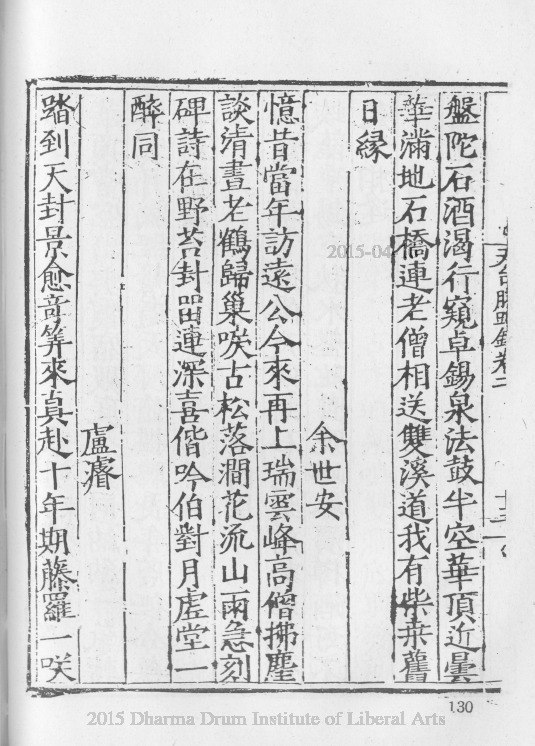 天台勝蹟錄卷二
十三
盤陀石酒渴行窺卓錫泉法鼓半空華頂近曇
華滿地石橋連老僧相送雙溪道我有柴桑舊
日緣
余世安
憶昔當年訪遠公今來再上瑞雲峰高僧拂塵
談清晝老鶴歸巢唳古松落澗花流山雨急刻
碑詩在野苔封留連深喜偕吟伯對月虛堂一
醉同
盧濬
踏到天封景愈奇筭來真赴十年期藤羅一咲
2015-04
130
2015 Dharma Drum Institute of Liberal Arts